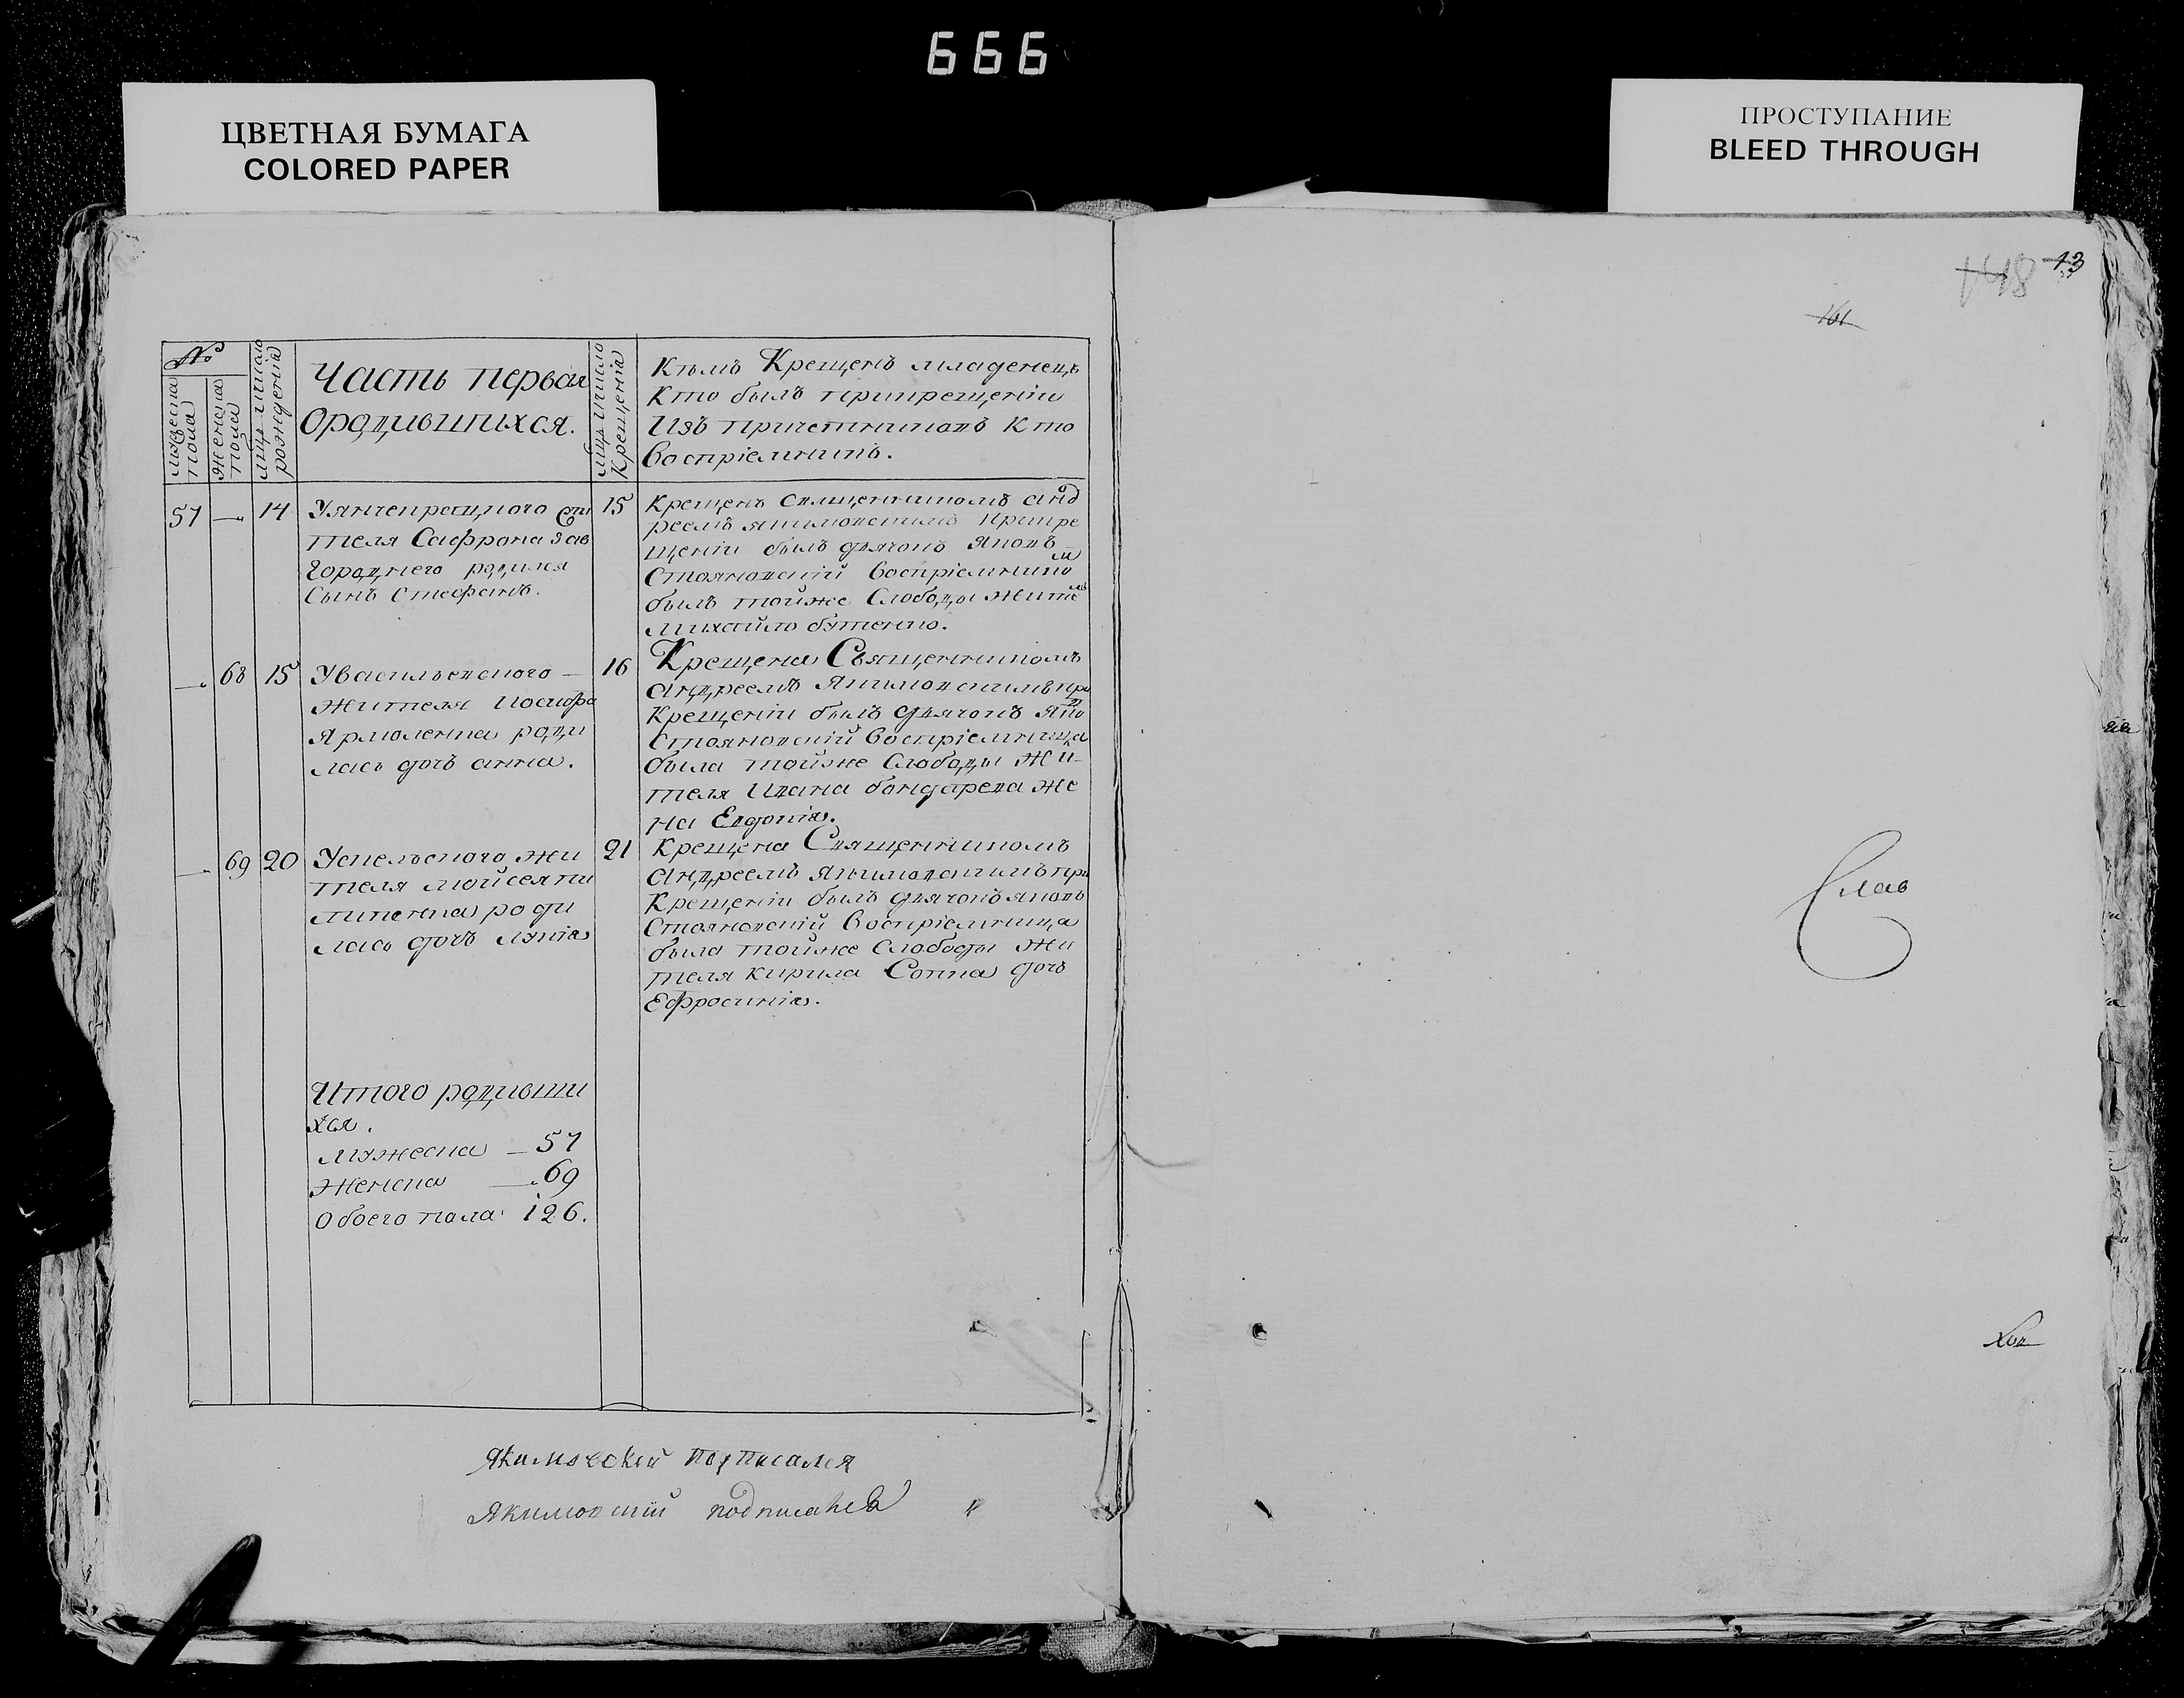 666
ЦВЕТНАЯ БУМАГА
COLORED PAPER
ПРОСТУПАНИЕ
BLEED THROUGH
148 13
161
№
мужеска пола
женска пола
рожденія
Часть первая
ородившихся.
Крещенія
Кѣмъ Крещенъ младенецъ
Кто былъ прикрещеніи
Изъ причетниковъ Кто
воспріемникъ.
57 — 14
теля Сафрона Зав
городнего родился
Сынъ Стефанъ.
15
Крещенъ священникомъ анд
реемъ якимовскимъ прикре
щеніи былъ дьячокъ Яковъ
Стояновскій воспріемнико
м
былъ тойже Слободы жите
ль
Михайло бутенко.
— 68 15
Увасильевского —
жителя
Ярмоленка роди
лась дочь анна.
16
Крещена Священникомъ
андреемъ Якимовскимъ при
Крещеніи былъ дьячокъ Яко
въ
Стояновскій воспріемница
была тойже Слободы Жи-
теля Ивана бондарева же
на Евдокія.
— 69 20
жи
теля мойсея пи
липенка роди
лась дочь
21
Крещена Священникомъ
андреемъ Якимовскимъ при
Крещеніи былъ дьячокъ яковъ
Стояновскій воспріемница
была тойже Слободы жи
теля кирила Сопка дочь
Ефросинія.
Итого родивши
хся.
мужеска — 57
женска — 69
Обоего пола 126.
Якимовскій подписался
Якимовскій подписался
Слав